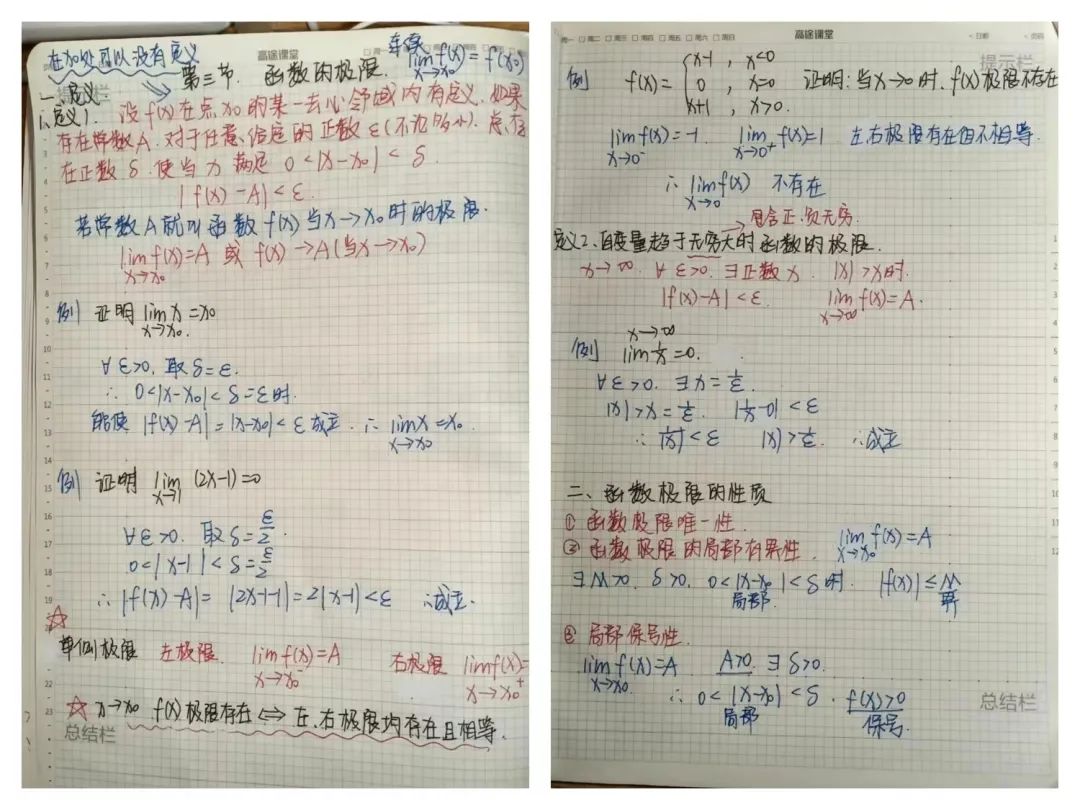 高途课堂
在x0处可以没有定义
连续 lim f(x)=f(x0)
x→x0
第三节. 函数的极限.
一、定义.
1、定义1. 设f(x)在点x0的某一去心邻域内有定义. 如果
存在常数A. 对于任意给定的正数ε(不论多小). 总存
在正数δ. 使当x满足 0<|x-x0|<δ.
|f(x)-A|<ε.
若常数A就叫函数f(x)当x→x0时的极限.
lim f(x)=A 或 f(x)→A(当x→x0)
x→x0
例 证明 lim x=x0
x→x0.
∀ε>0, 取δ=ε.
∴ 0<|x-x0|<δ=ε时.
能使 |f(x)-A|=|x-x0|<ε成立. ∴ lim x=x0.
x→x0
例 证明 lim (2x-1)=0
x→1
∀ε>0. 取δ=ε/2.
0<|x-1|<δ=ε/2
∴ |f(x)-A|= |2x-1-1|=2|x-1|<ε ∴成立.
☆
单侧极限 左极限. lim f(x)=A 右极限 lim f(x)=
x→x0⁻ x→x0⁺
☆ x→x0 f(x)极限存在⇔左、右极限均存在且相等.
总结栏
周一 □周二 □周三 □周四 □周五 □周六 □周日 高途课堂
提示栏
例 f(x)={x-1 , x<0
0 , x=0 证明:当x→0时. f(x)极限不存在
x+1 , x>0.
lim f(x)=-1 lim f(x)=1 左右极限存在但不相等.
x→0⁻ x→0⁺
∴ lim f(x) 不存在
x→0
包含正.负无穷
定义2、自变量趋于无穷大时函数的极限.
x→∞. ∀ε>0. ∃正数X. |x|>X时.
|f(x)-A|<ε. lim f(x)=A.
x→∞
x→∞
例 lim 1/x=0.
∀ε>0. ∃X=1/ε.
|x|>X=1/ε. |1/x-0|<ε
∴ 1/|x|<ε |x|>1/ε. ∴成立
二、函数极限的性质
① 函数极限唯一性.
② 函数极限的局部有界性. lim f(x)=A
x→x0
∃M>0. δ>0. 0<|x-x0|<δ时. |f(x)|≤M
局部 界
③ 局部保号性.
lim f(x)=A A>0. ∃δ>0.
x→x0
∴ 0<|x-x0|<δ. f(x)>0
局部 保号.
总结栏